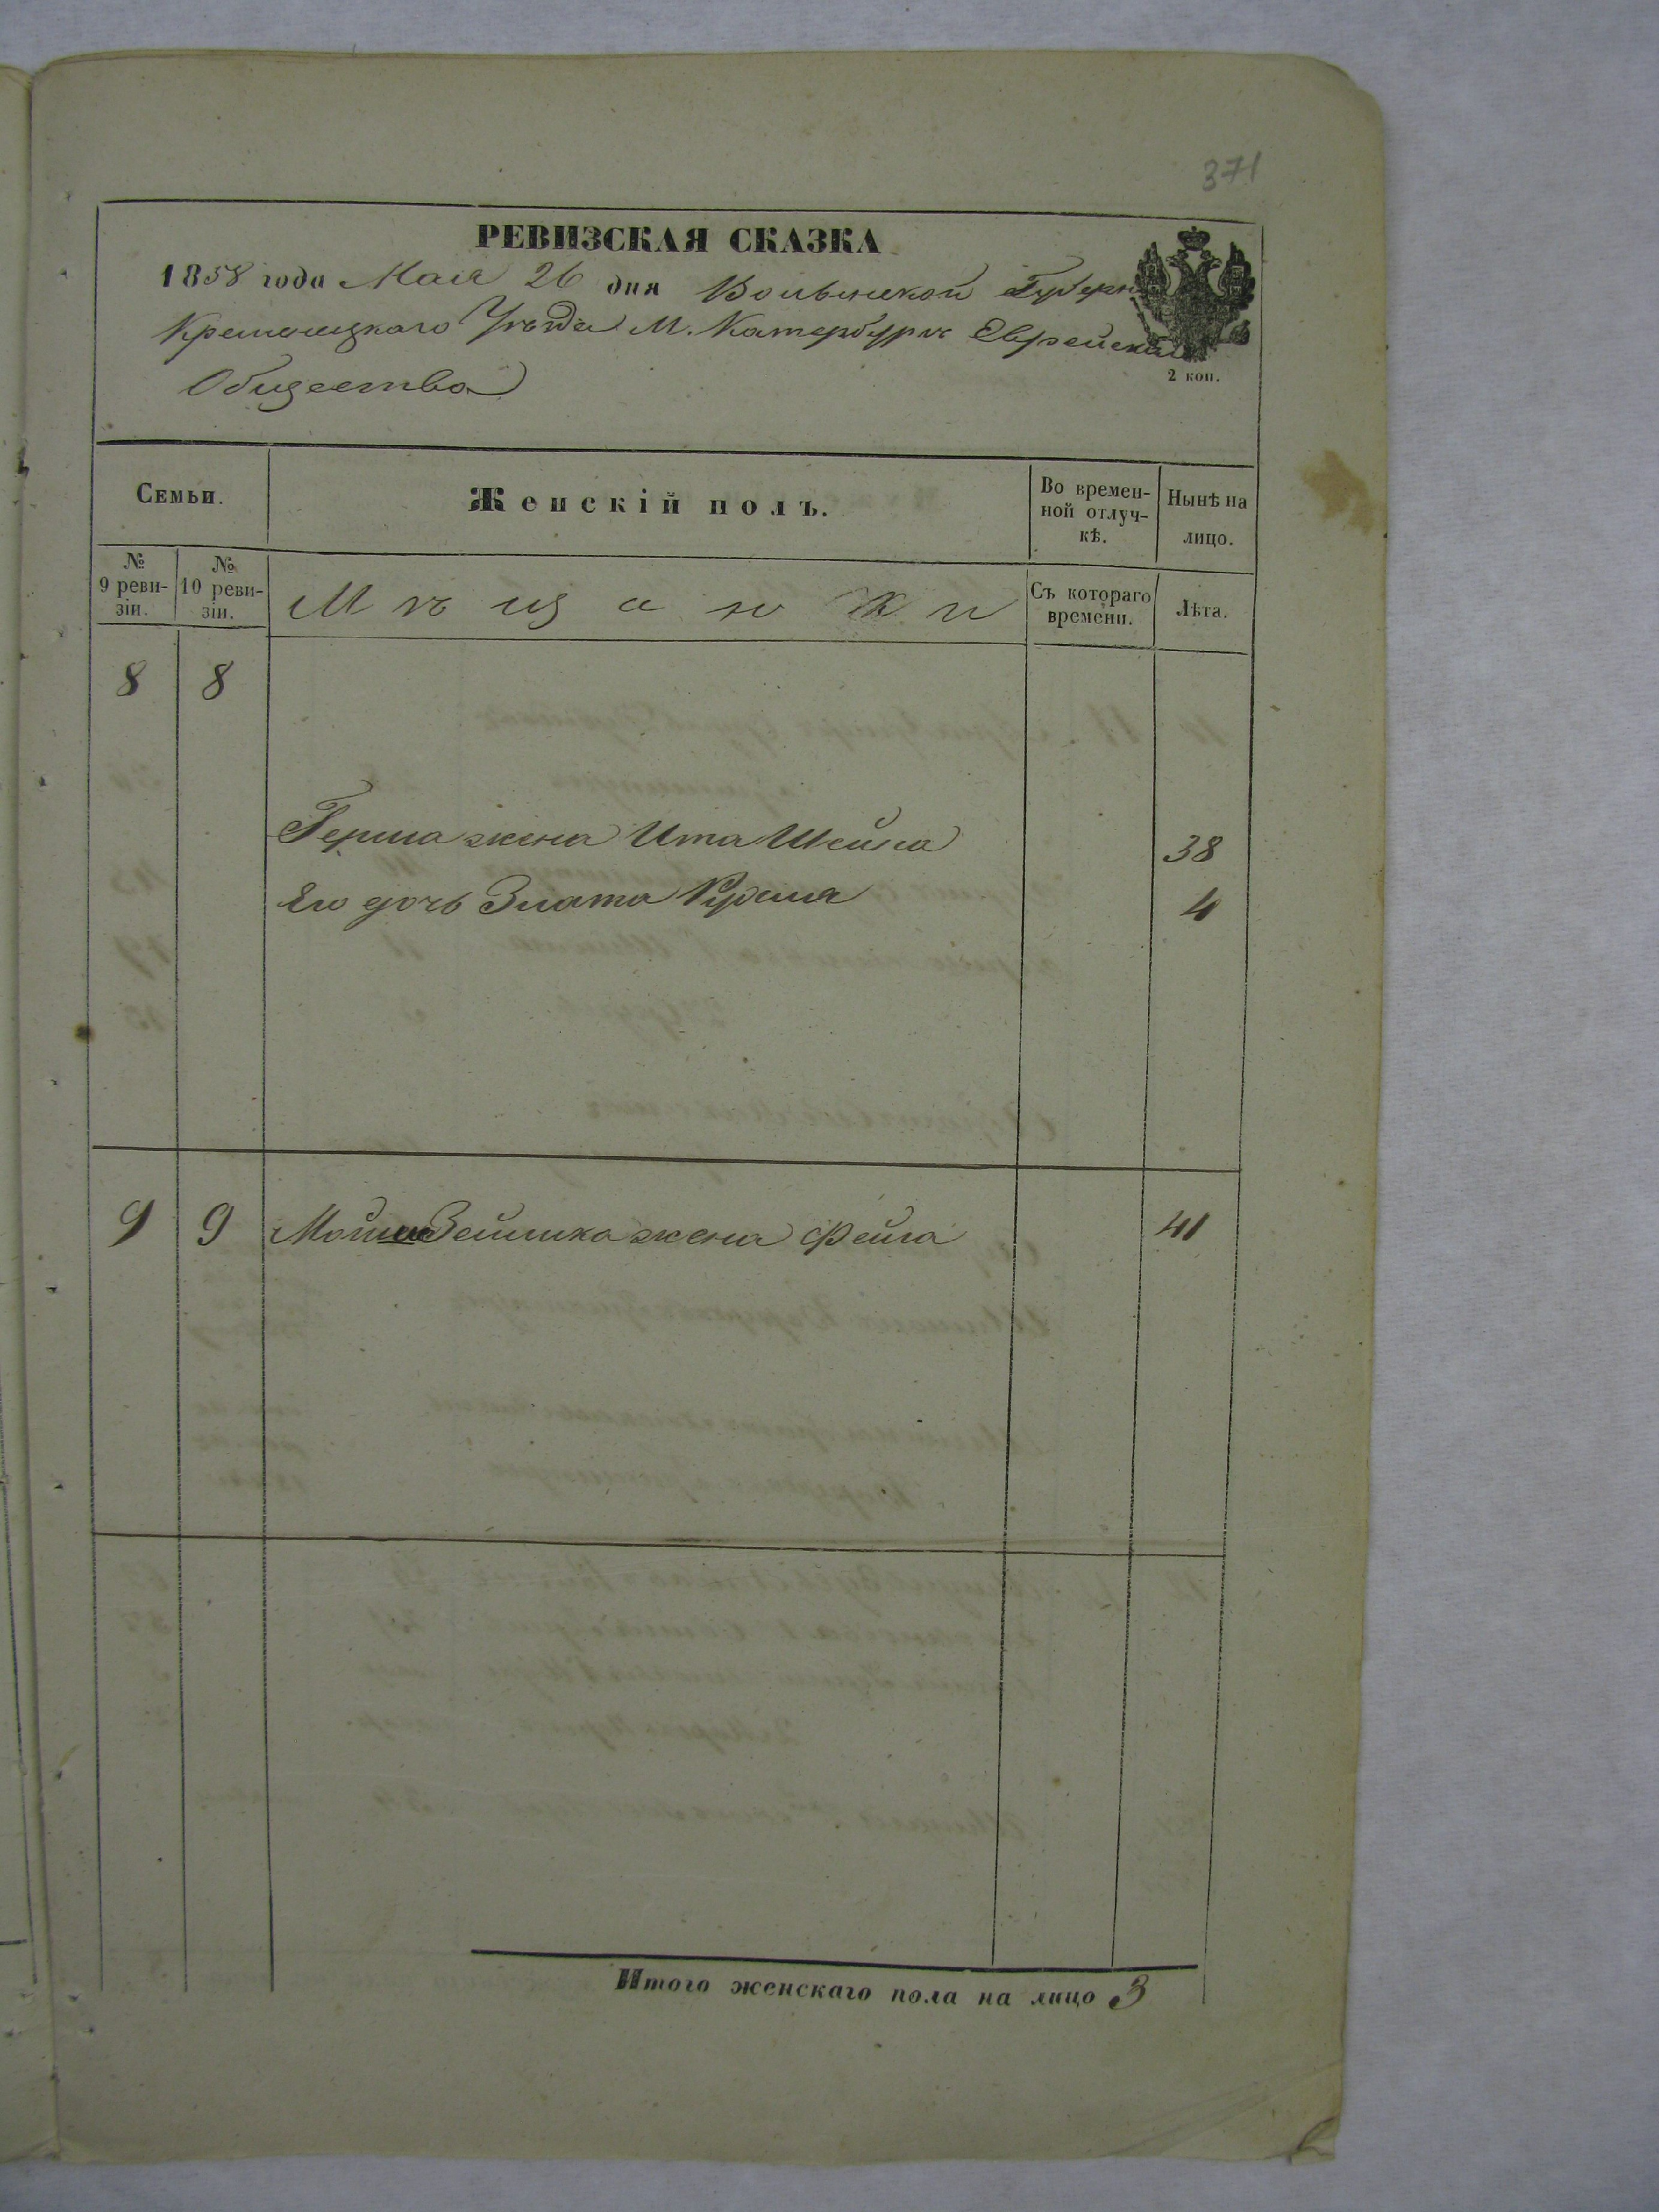 371
РЕВИЗСКАЯ СКАЗКА
1858 года Мая 26 дня Волынской Губерн
Кременецкаго Уѣзда М. Катербургъ Еврейскаго
Общества
2 коп.
Семьи.
Женскій полъ.
Во времен-
ной отлуч-
кѣ.
Нынѣ на
лицо.
№
9 реви-
зіи.
№
10 реви-
зіи.
Мѣщанки
Съ котораго
времени.
Лѣта.
8 8
Герша жена Ита Шейна 38
Его дочь Злата 4
9 9 Мошка Зейлика жена Фейга 41
Итого женскаго пола на лицо 3